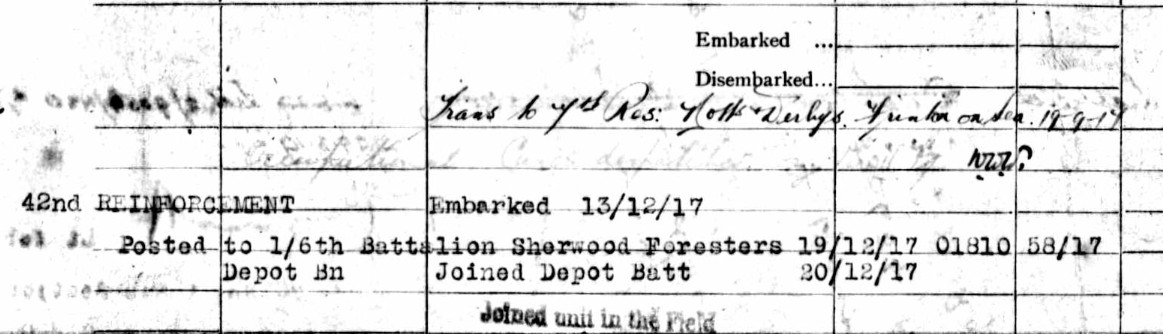 Embarked ...
Disembarked...
Trans to 7th Res: Notts & Derbys. Frinton on Sea. 19-9-17
42nd REINFORCEMENT Embarked 13/12/17
Posted to 1/6th Battalion Sherwood Foresters 19/12/17 01810 58/17
Depot Bn Joined Depot Batt 20/12/17
Joined unit in the Field